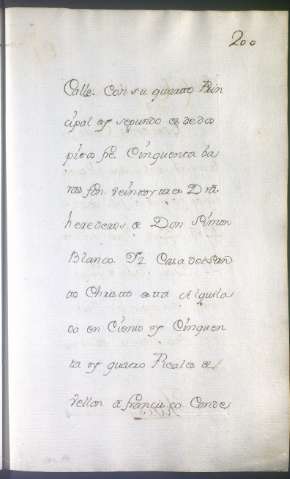 200
Calle. Con su quarto Prin
cipal y segundo es de dos
pisos fte. Cinquenta ba
ras fdo. veintey
herederos de Don Simon
Blanco. Casa
Christo esta Alquila
da en Ciento y Cinquen
ta y quatro Reales de
vellon a Francisco Conde